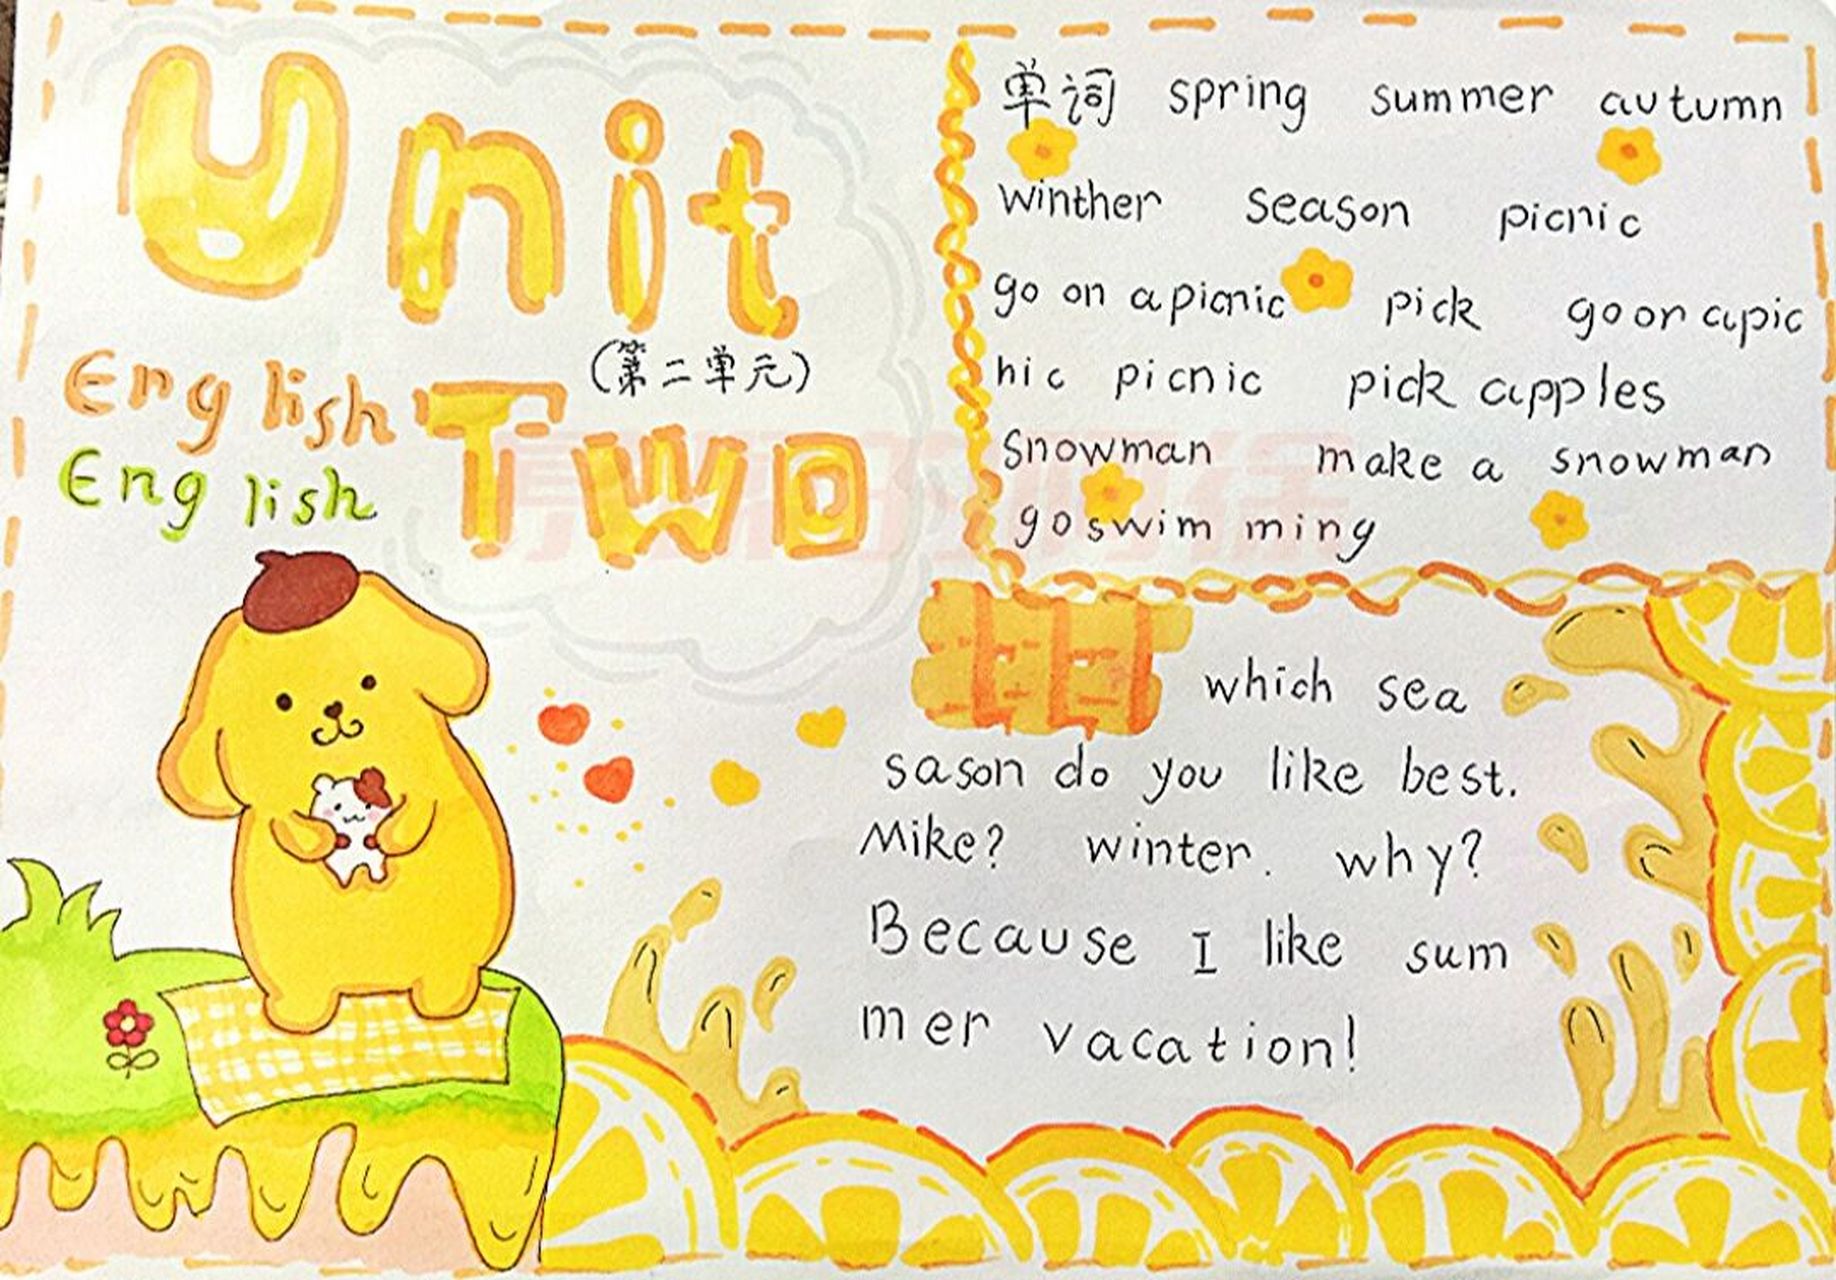 Unit
(第二单元)
English
Two
English
单词 spring summer autumn
winther season picnic
go on a picnic pick go on a pic
hic picnic pick apples
Snowman make a snowman
go swimming
which sea
sason do you like best.
Mike? winter. why?
Because I like sum
mer vacation!